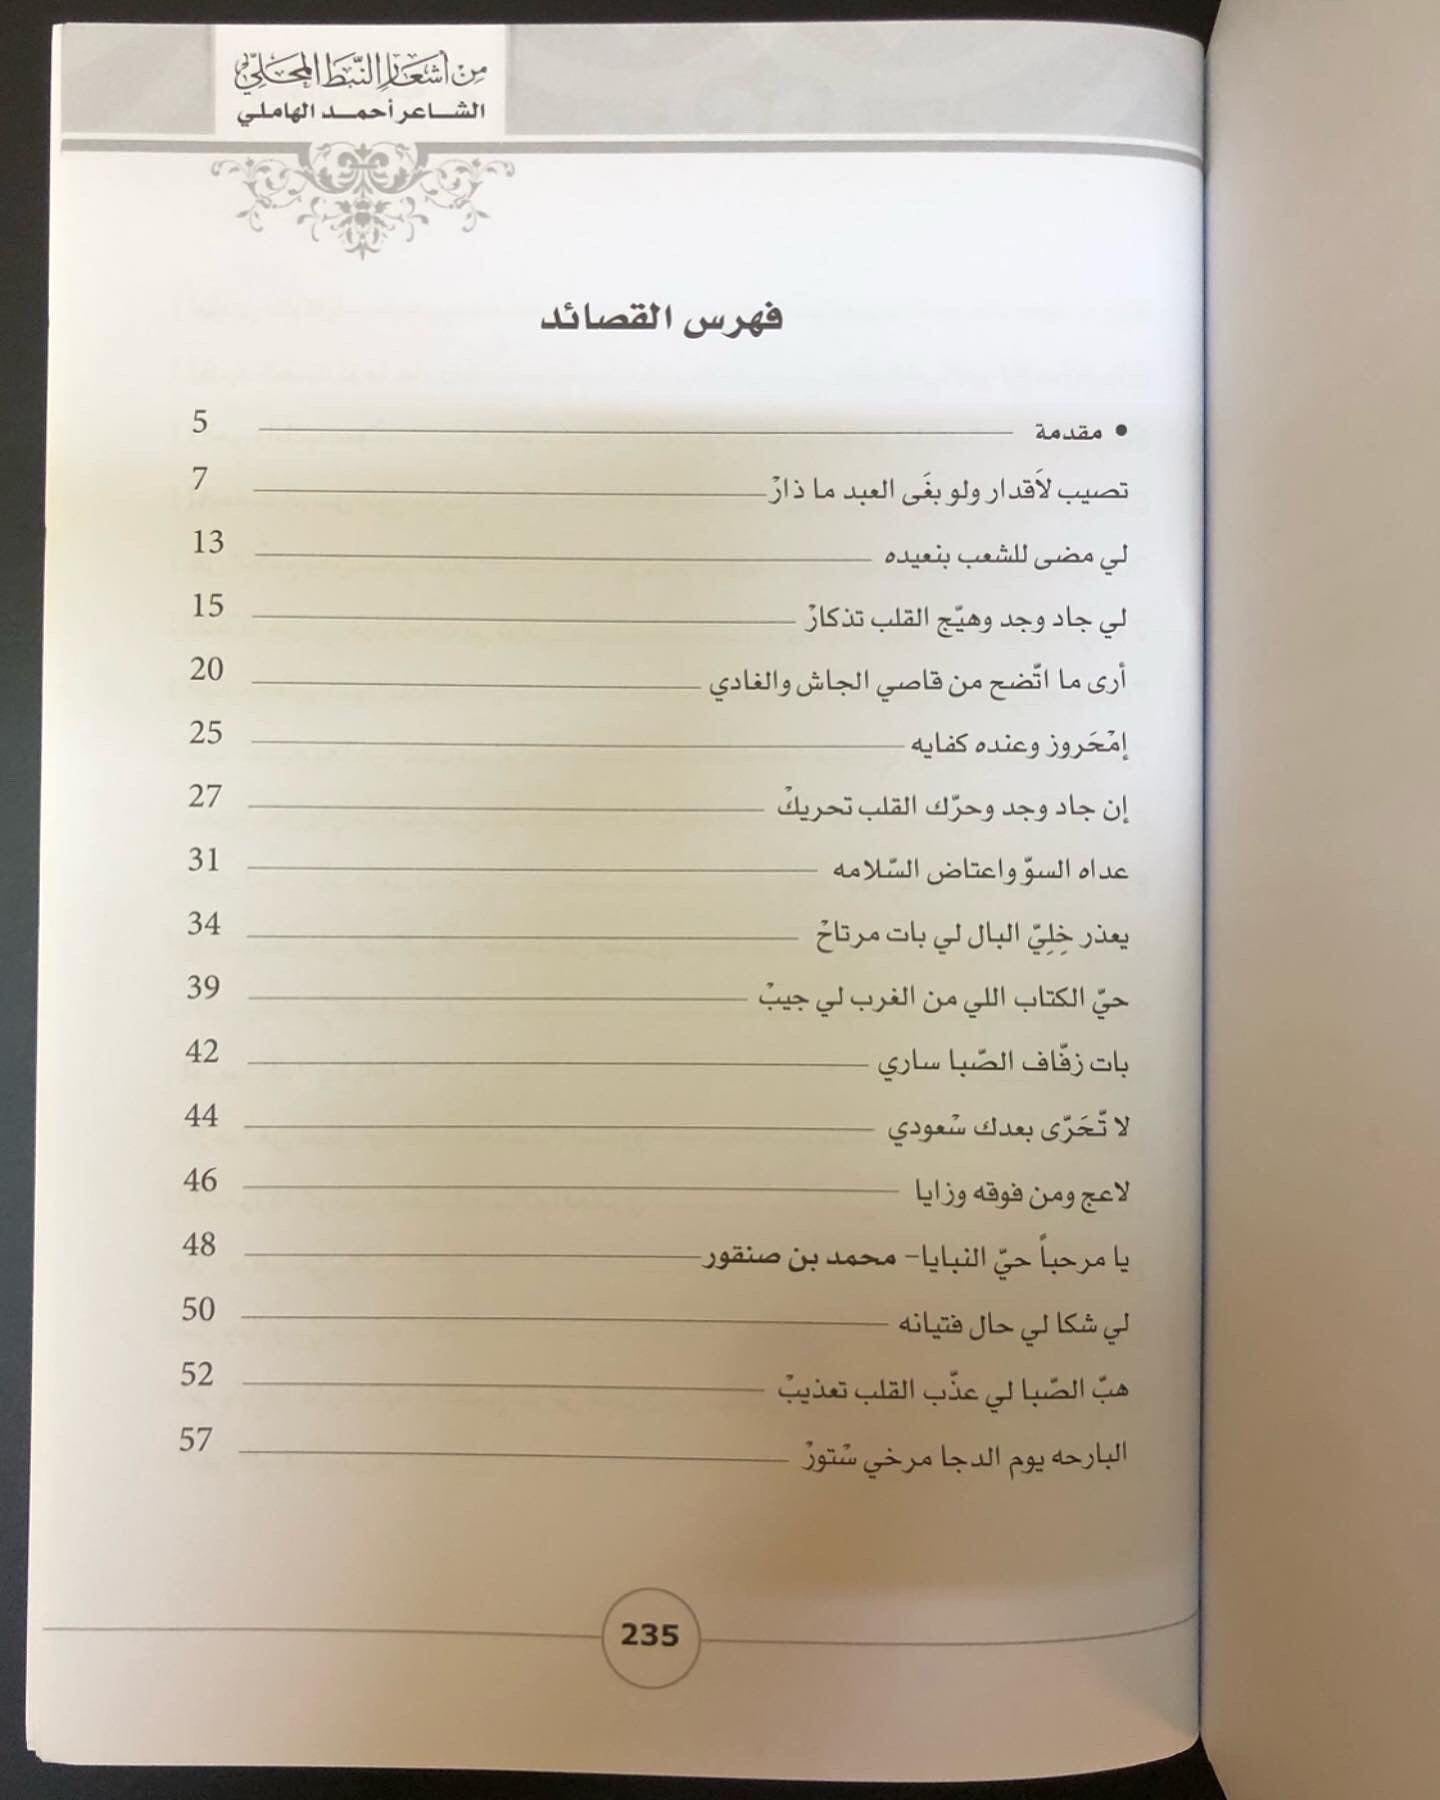 من أشعار النّبط المحلي
الشاعر أحمد الهاملي
فهرس القصائد
• مقدمة 5
تصيب لَاقدار ولو بغَى العبد ما ذارْ 7
لي مضى للشعب بنعيده 13
لي جاد وجد وهيّج القلب تذكارْ 15
أرى ما اتّضح من قاصي الجاش والغادي 20
إمْحَروز وعنده كفايه 25
إن جاد وجد وحرّك القلب تحريكْ 27
عداه السوّ واعتاض السّلامه 31
يعذر خِلِيّ البال لي بات مرتاحْ 34
حيّ الكتاب اللي من الغرب لي جيبْ 39
بات زفّاف الصّبا ساري 42
لا تّحَرّى بعدك سْعودي 44
لاعج ومن فوقه وزايا 46
يا مرحباً حيّ النبايا- محمد بن صنقور 48
لي شكا لي حال فتيانه 50
هبّ الصّبا لي عذّب القلب تعذيبْ 52
البارحه يوم الدجا مرخي سْتورْ 57
235